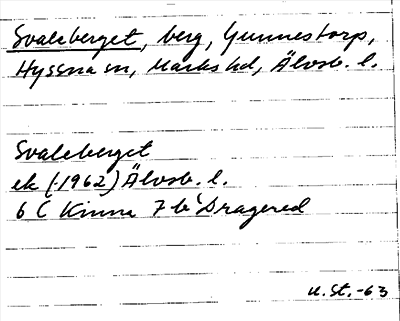 Svaleberget, berg, Gunnestorp,
Hyssna sn, Marks hd, Älvsb. l.
Svaleberget
ek (1962) Älvsb. l.
6 C Kinna 7 b Dragered
U. St. -63